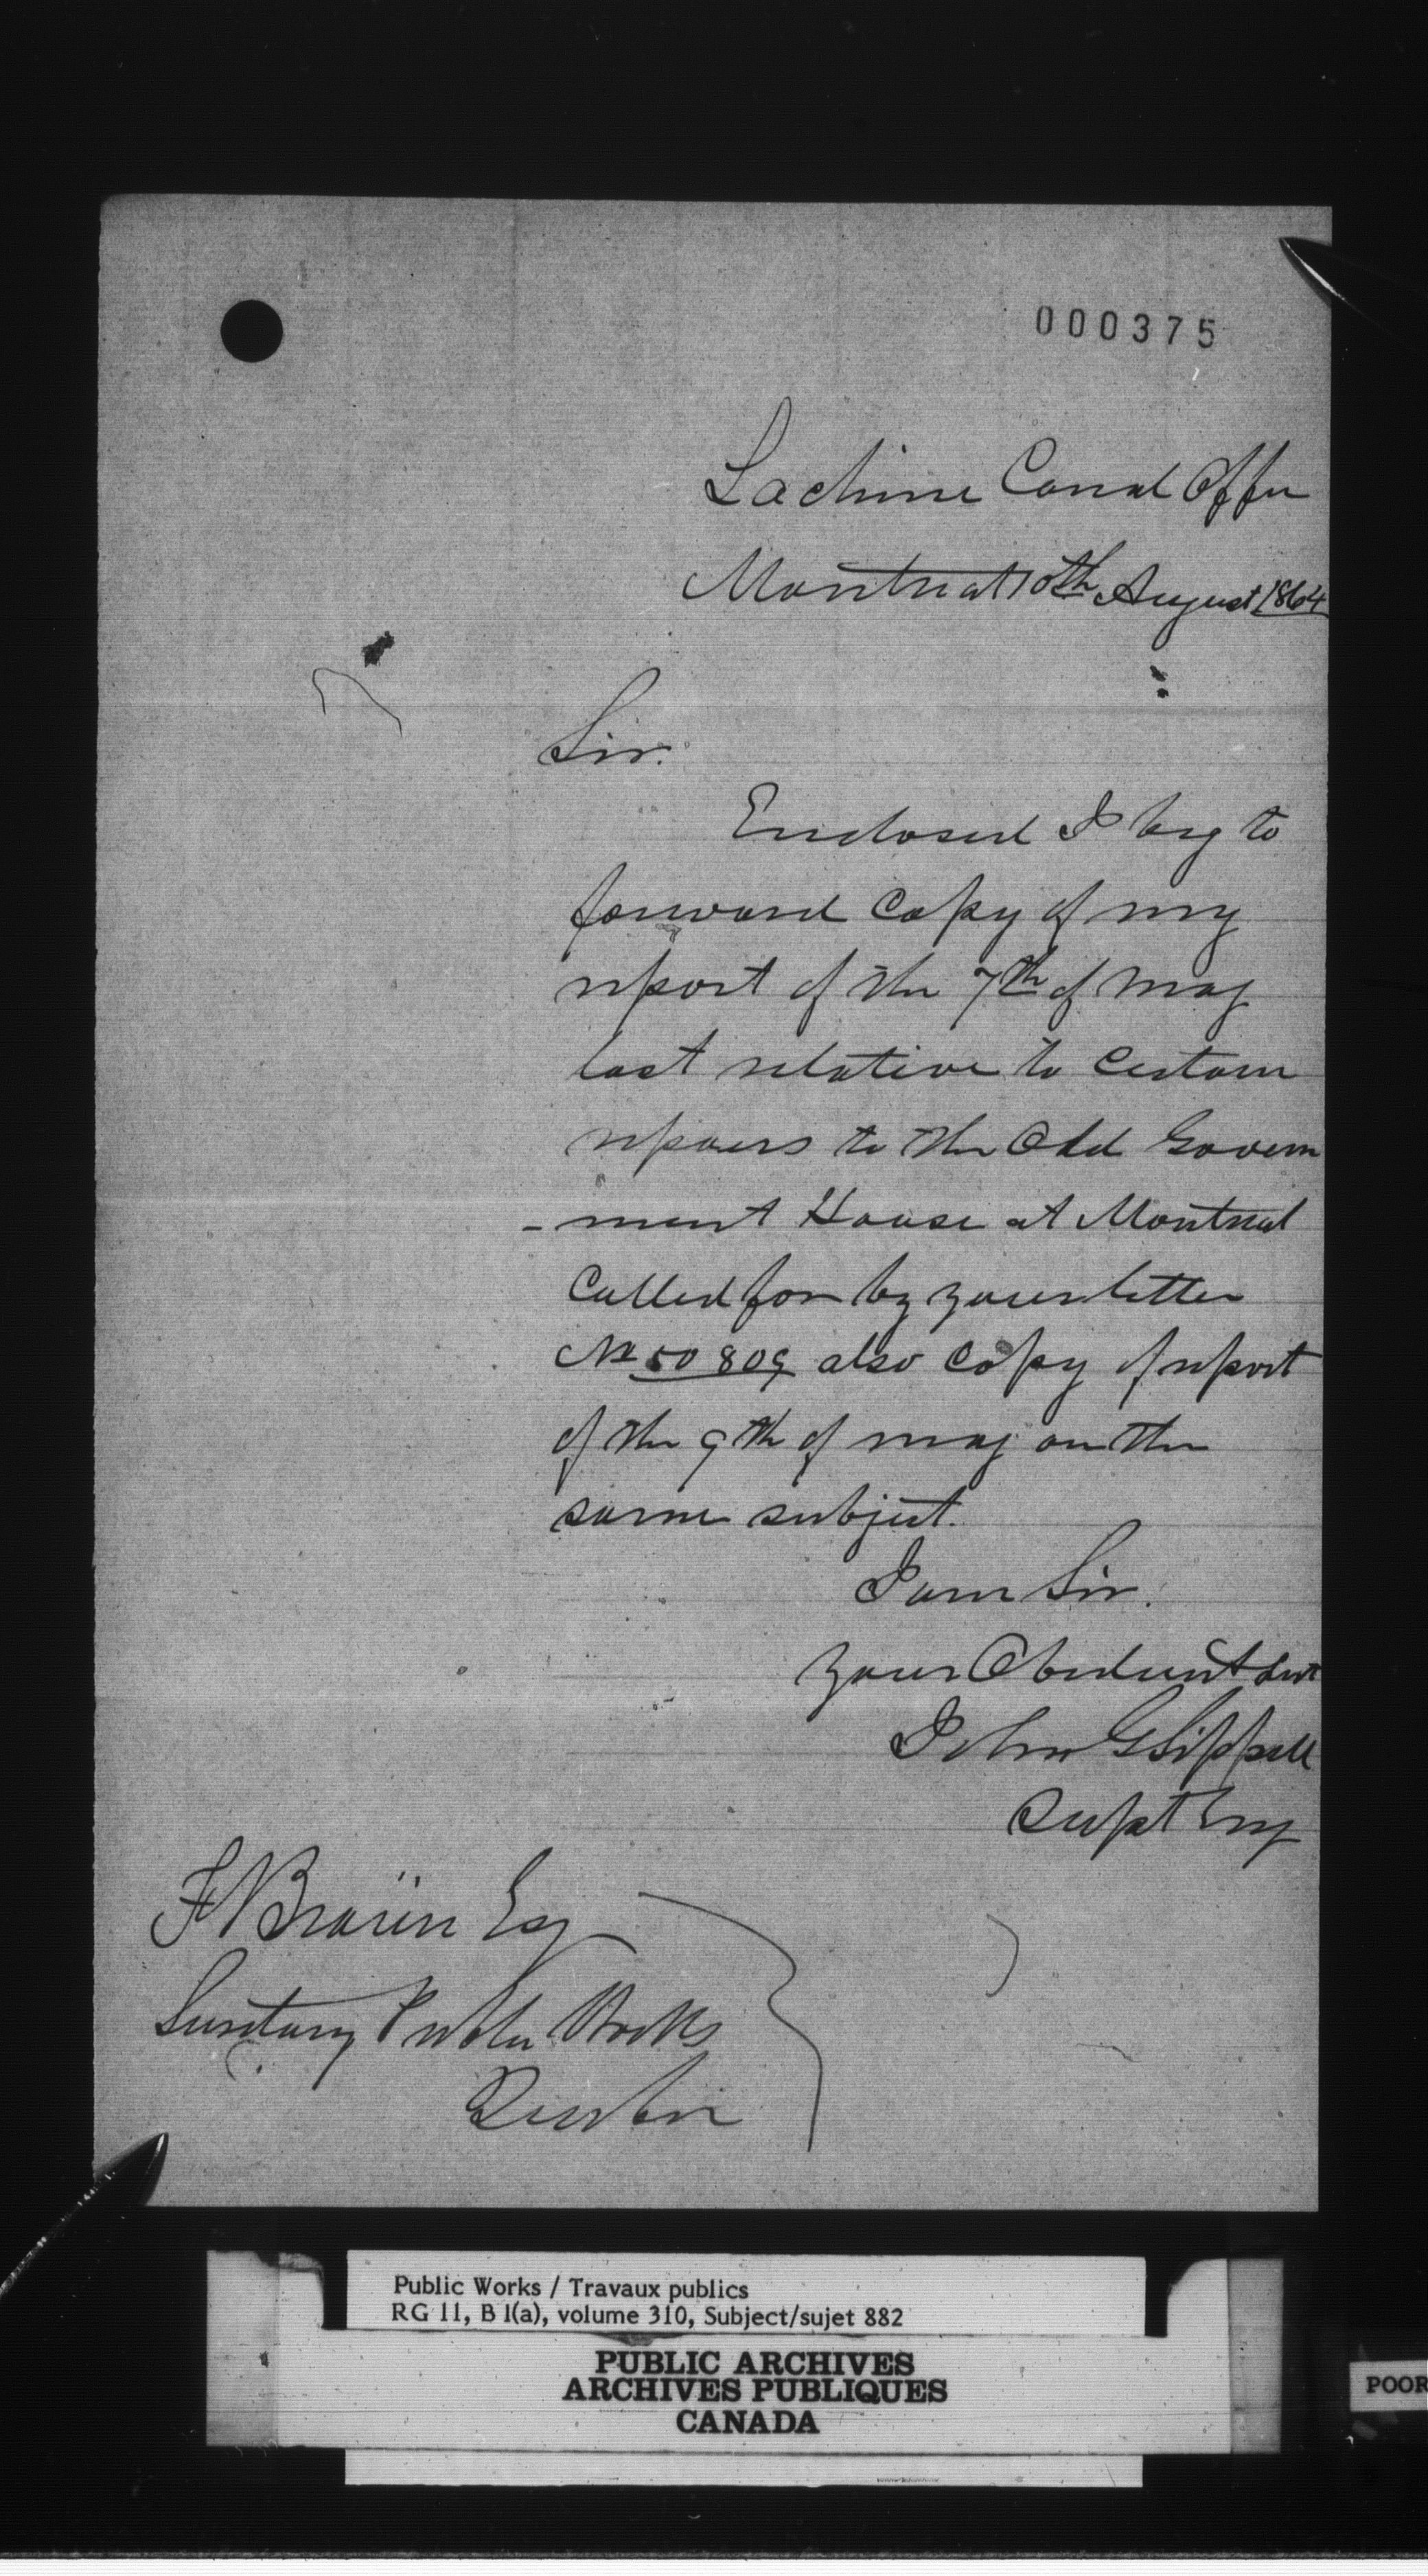 000375
Lachine Canal Office
Montreal 10th August 1864
Sir.
Enclosed I beg to
forward Copy of my
report of the 7th of May
last relative to Certain
repairs to the Old Govern
-ment House at Montreal
Called for by your letter
No 50809 also Copy of report
of the 9th of May on the
same subject.
I am Sir.
Your Obedient Servt
John G Sippell
Supt Eng
F Braün Esq
Secretary Public Works
Quebec
Public Works / Travaux publics
RG 11, B 1(a), volume 310, Subject/sujet 882
PUBLIC ARCHIVES
ARCHIVES PUBLIQUES
CANADA
POOR